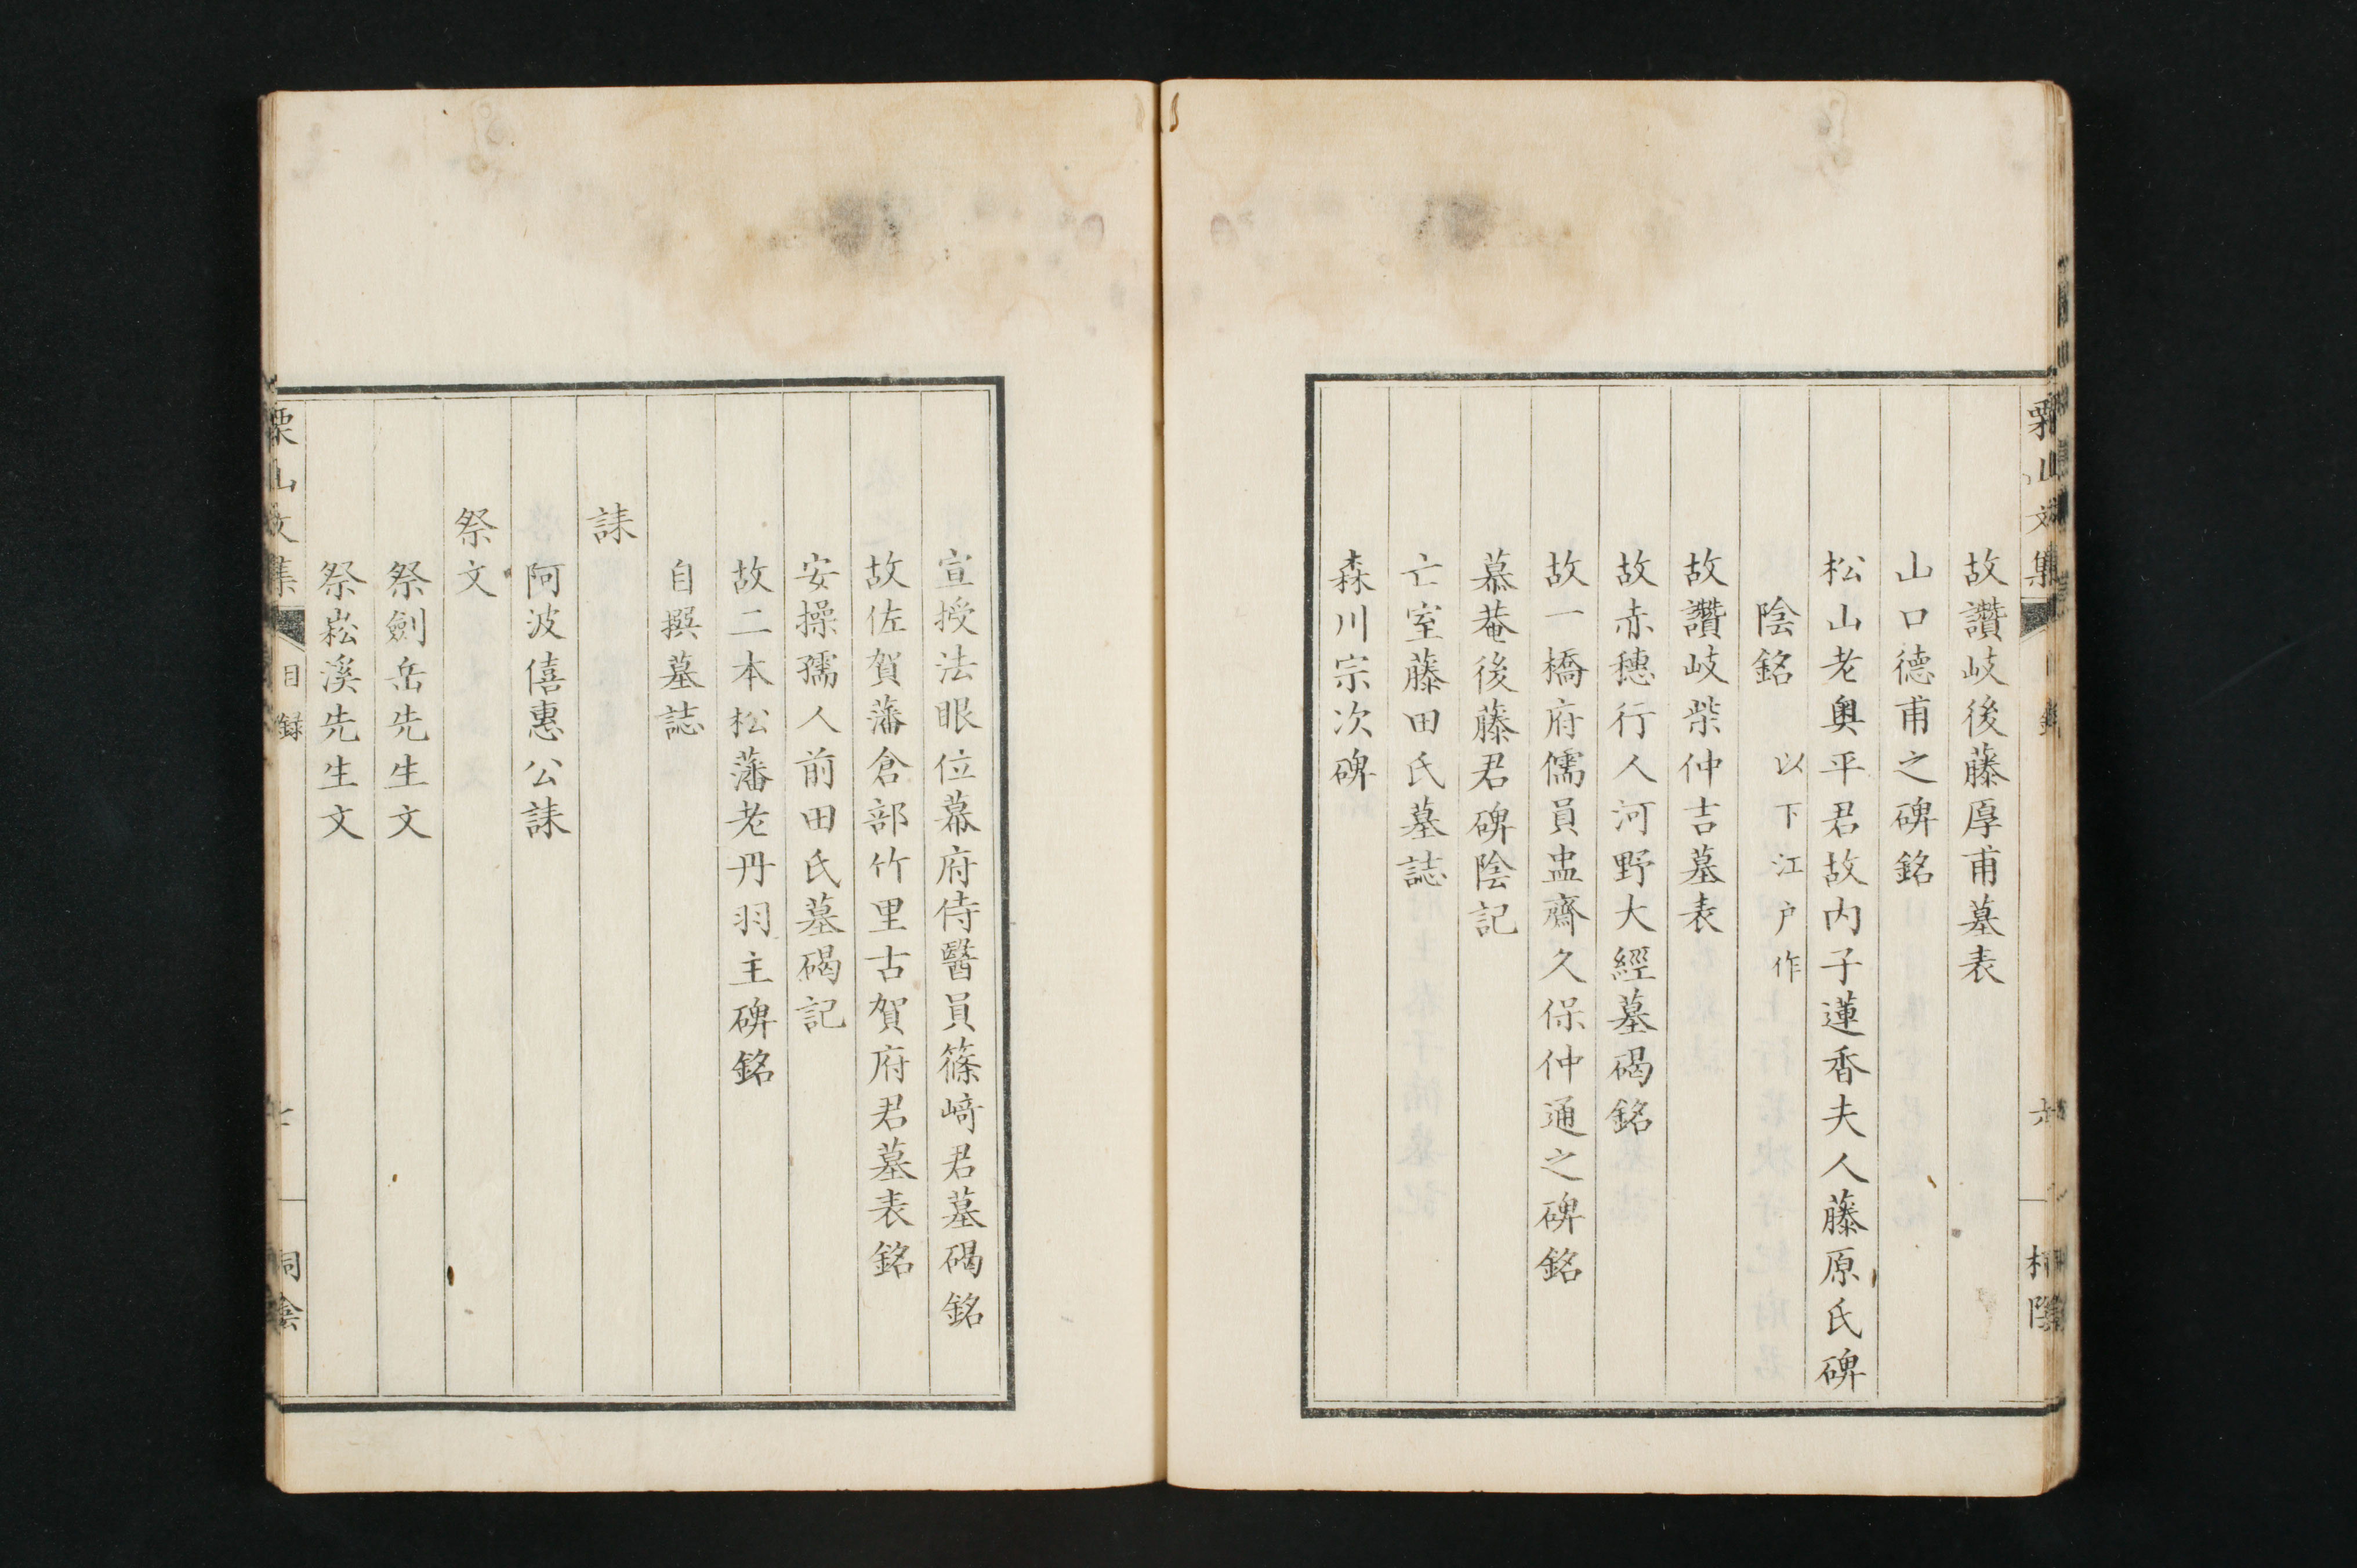 故讚岐後藤厚甫墓表
山口德甫之碑銘
松山老奥平君故内子蓮香夫人藤原氏碑
陰銘 以下江户作
故讚岐柴仲吉墓表
故赤穗行人河野大經墓碣銘
故一橋府儒員盅齋久保仲通之碑銘
慕菴後藤君碑陰記
亡室藤田氏墓誌
森川宗次碑
宣授法眼位幕府侍醫員篠﨑君墓碣銘
故佐賀藩倉部竹里古賀府君墓表銘
安操孺人前田氏墓碣記
故二本松藩老丹羽主碑銘
自撰墓誌
誄
阿波僖惠公誄
祭文
祭劍岳先生文
祭崧溪先生文
栗山文集 目録